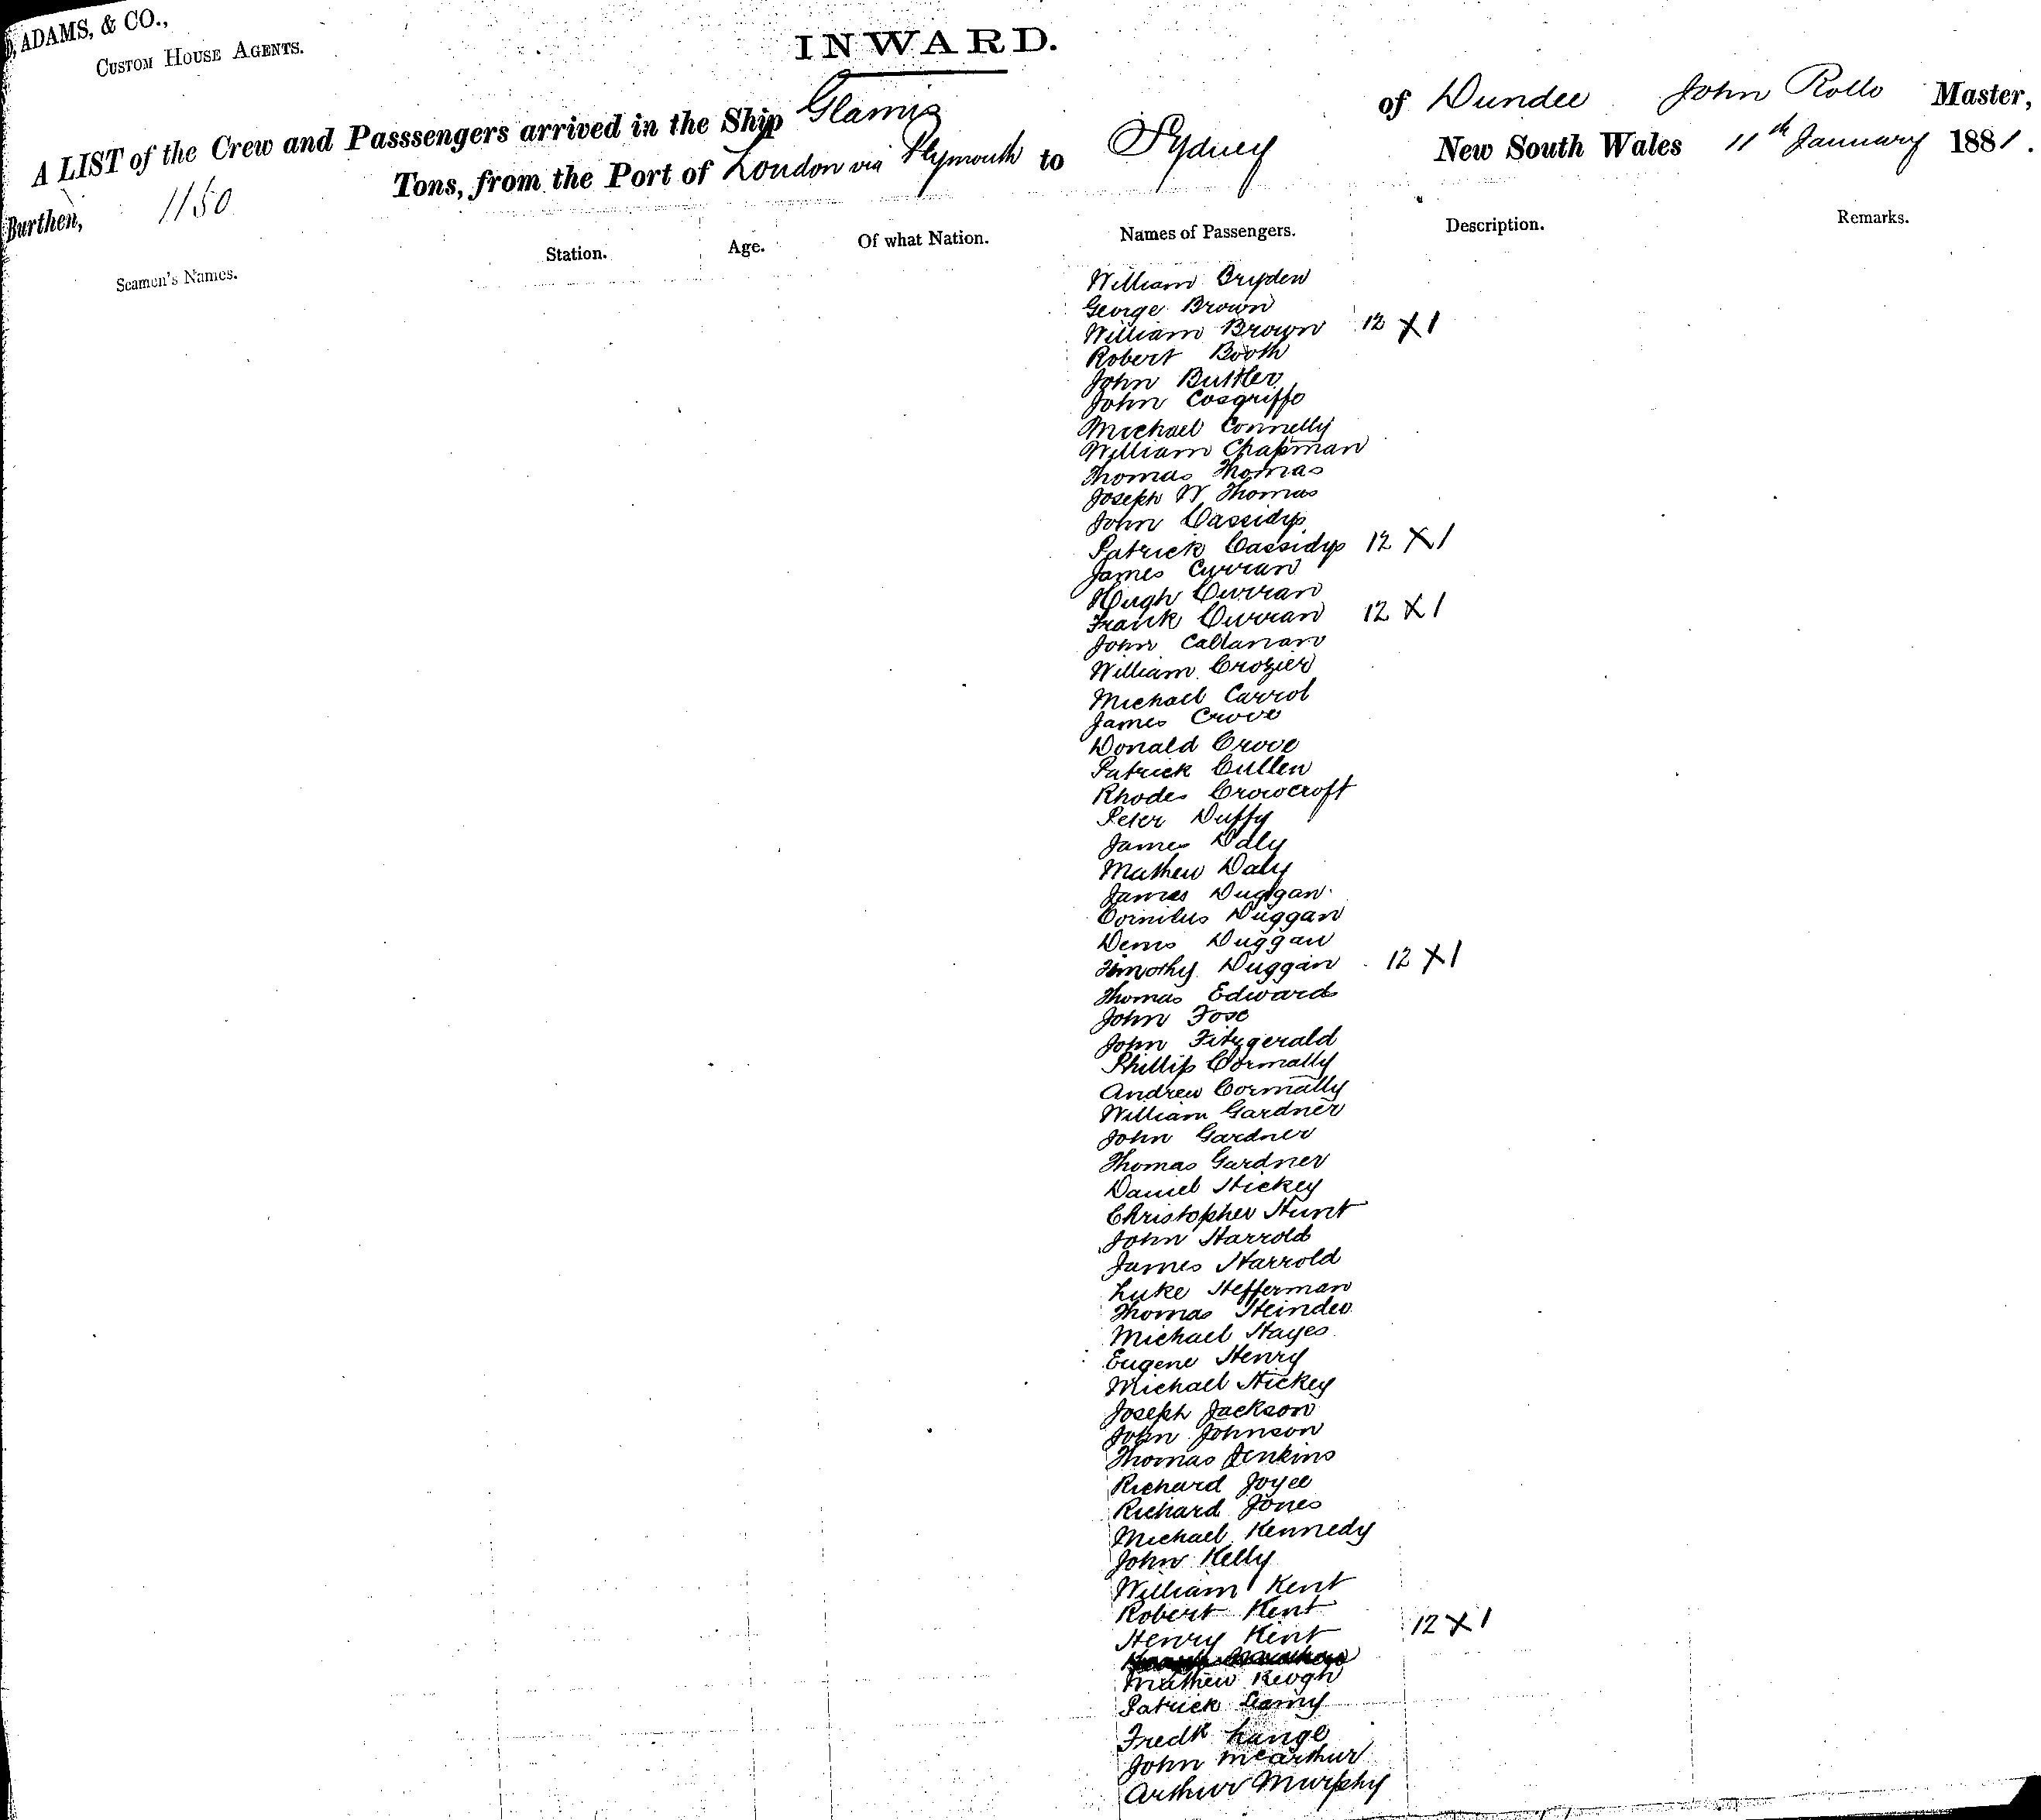 ADAMS, & CO.,
CUSTOM HOUSE AGENTS.
INWARD.
A LIST of the Crew and Passsengers arrived in the Ship Glamis of Dundee John Rollo Master,
Burthen, 1150 Tons, from the Port of London via Plymouth to Sydney New South Wales 11th January 1881.
Seamen's Names. Station. Age. Of what Nation. Names of Passengers. Description. Remarks.
William Bryden
George Brown
William Brown 12 X 1
Robert Booth
John Buttler
John Cosgriffe
Michael Connelly
William Chapman
Thomas Thomas
Joseph W Thomas
John Cassidy
Patrick Cassidy 12 X 1
James Curran
Hugh Curran
Frank Curran 12 X 1
John Callanan
William Crozier
Michael Carrol
James Crowe
Donald Crowe
Patrick Cullen
Rhodes Crowcroft
Peter Duffy
James Daly
Mathew Daly
James Duggan
Cornilus Duggan
Denis Duggan
Timothy Duggan 12 X 1
Thomas Edwards
John
John Fitzgerald
Phillip Cormally
Andrew Cormally
William Gardner
John Gardner
Thomas Gardner
Daniel Hickey
Christopher Hunt
John Harrold
James Harrold
Luke Hefferman
Thomas
Michael Hayes
Eugene Henry
Michael Hickey
Joseph Jackson
John Johnson
Thomas Jenkins
Richard Joyce
Richard Jones
Michael Kennedy
John Kelly
William Kent
Robert Kent
Henry Kent 12 X 1
Mathew Keogh
Patrick Leamy
Fredk Lange
John McArthur
Arthur Murphy